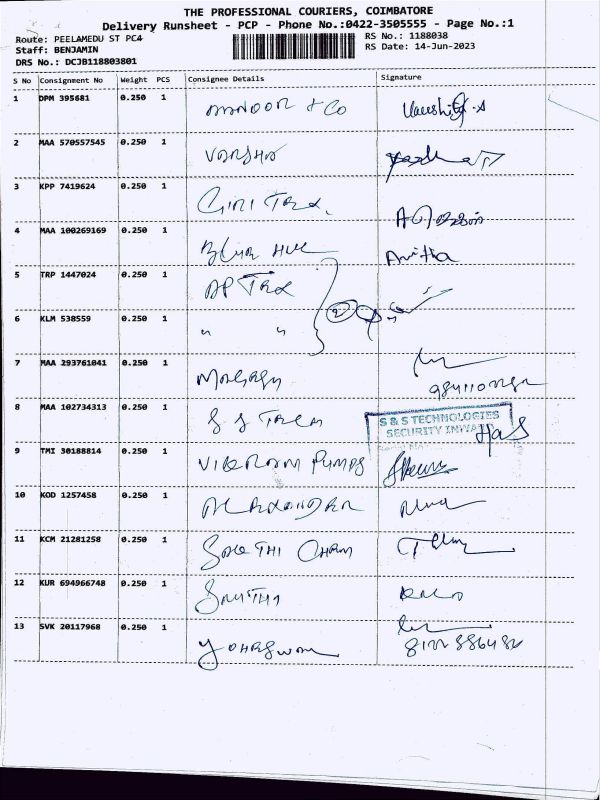 THE PROFESSIONAL COURIERS, COIMBATORE
Delivery Runsheet - PCP - Phone No.:0422-3505555 - Page No.:1
Route: PEELAMEDU ST PC4 RS No.: 1188038
Staff: BENJAMIN RS Date: 14-Jun-2023
DRS No.: DCJB118803801
S No Consignment No Weight PCS Consignee Details Signature
1 DPM 395681 0.250 1 & CO
2 MAA 570557545 0.250 1 VARSHA
3 KPP 7419624 0.250 1 GIRI TEX.
4 MAA 100269169 0.250 1 BLUE HUE Anitha
5 TRP 1447024 0.250 1 AP TEX
6 KLM 538559 0.250 1 " "
7 MAA 293761041 0.250 1
8 MAA 102734313 0.250 1 S S TECH S & S TECHNOLOGIES
SECURITY INWARD
9 TMI 30188814 0.250 1 VIKRAM PUMPS
10 KOD 1257458 0.250 1 ALEXANDER
11 KCM 21281258 0.250 1 SAKTHI
12 KUR 694966748 0.250 1 SMITHA
13 SVK 20117968 0.250 1